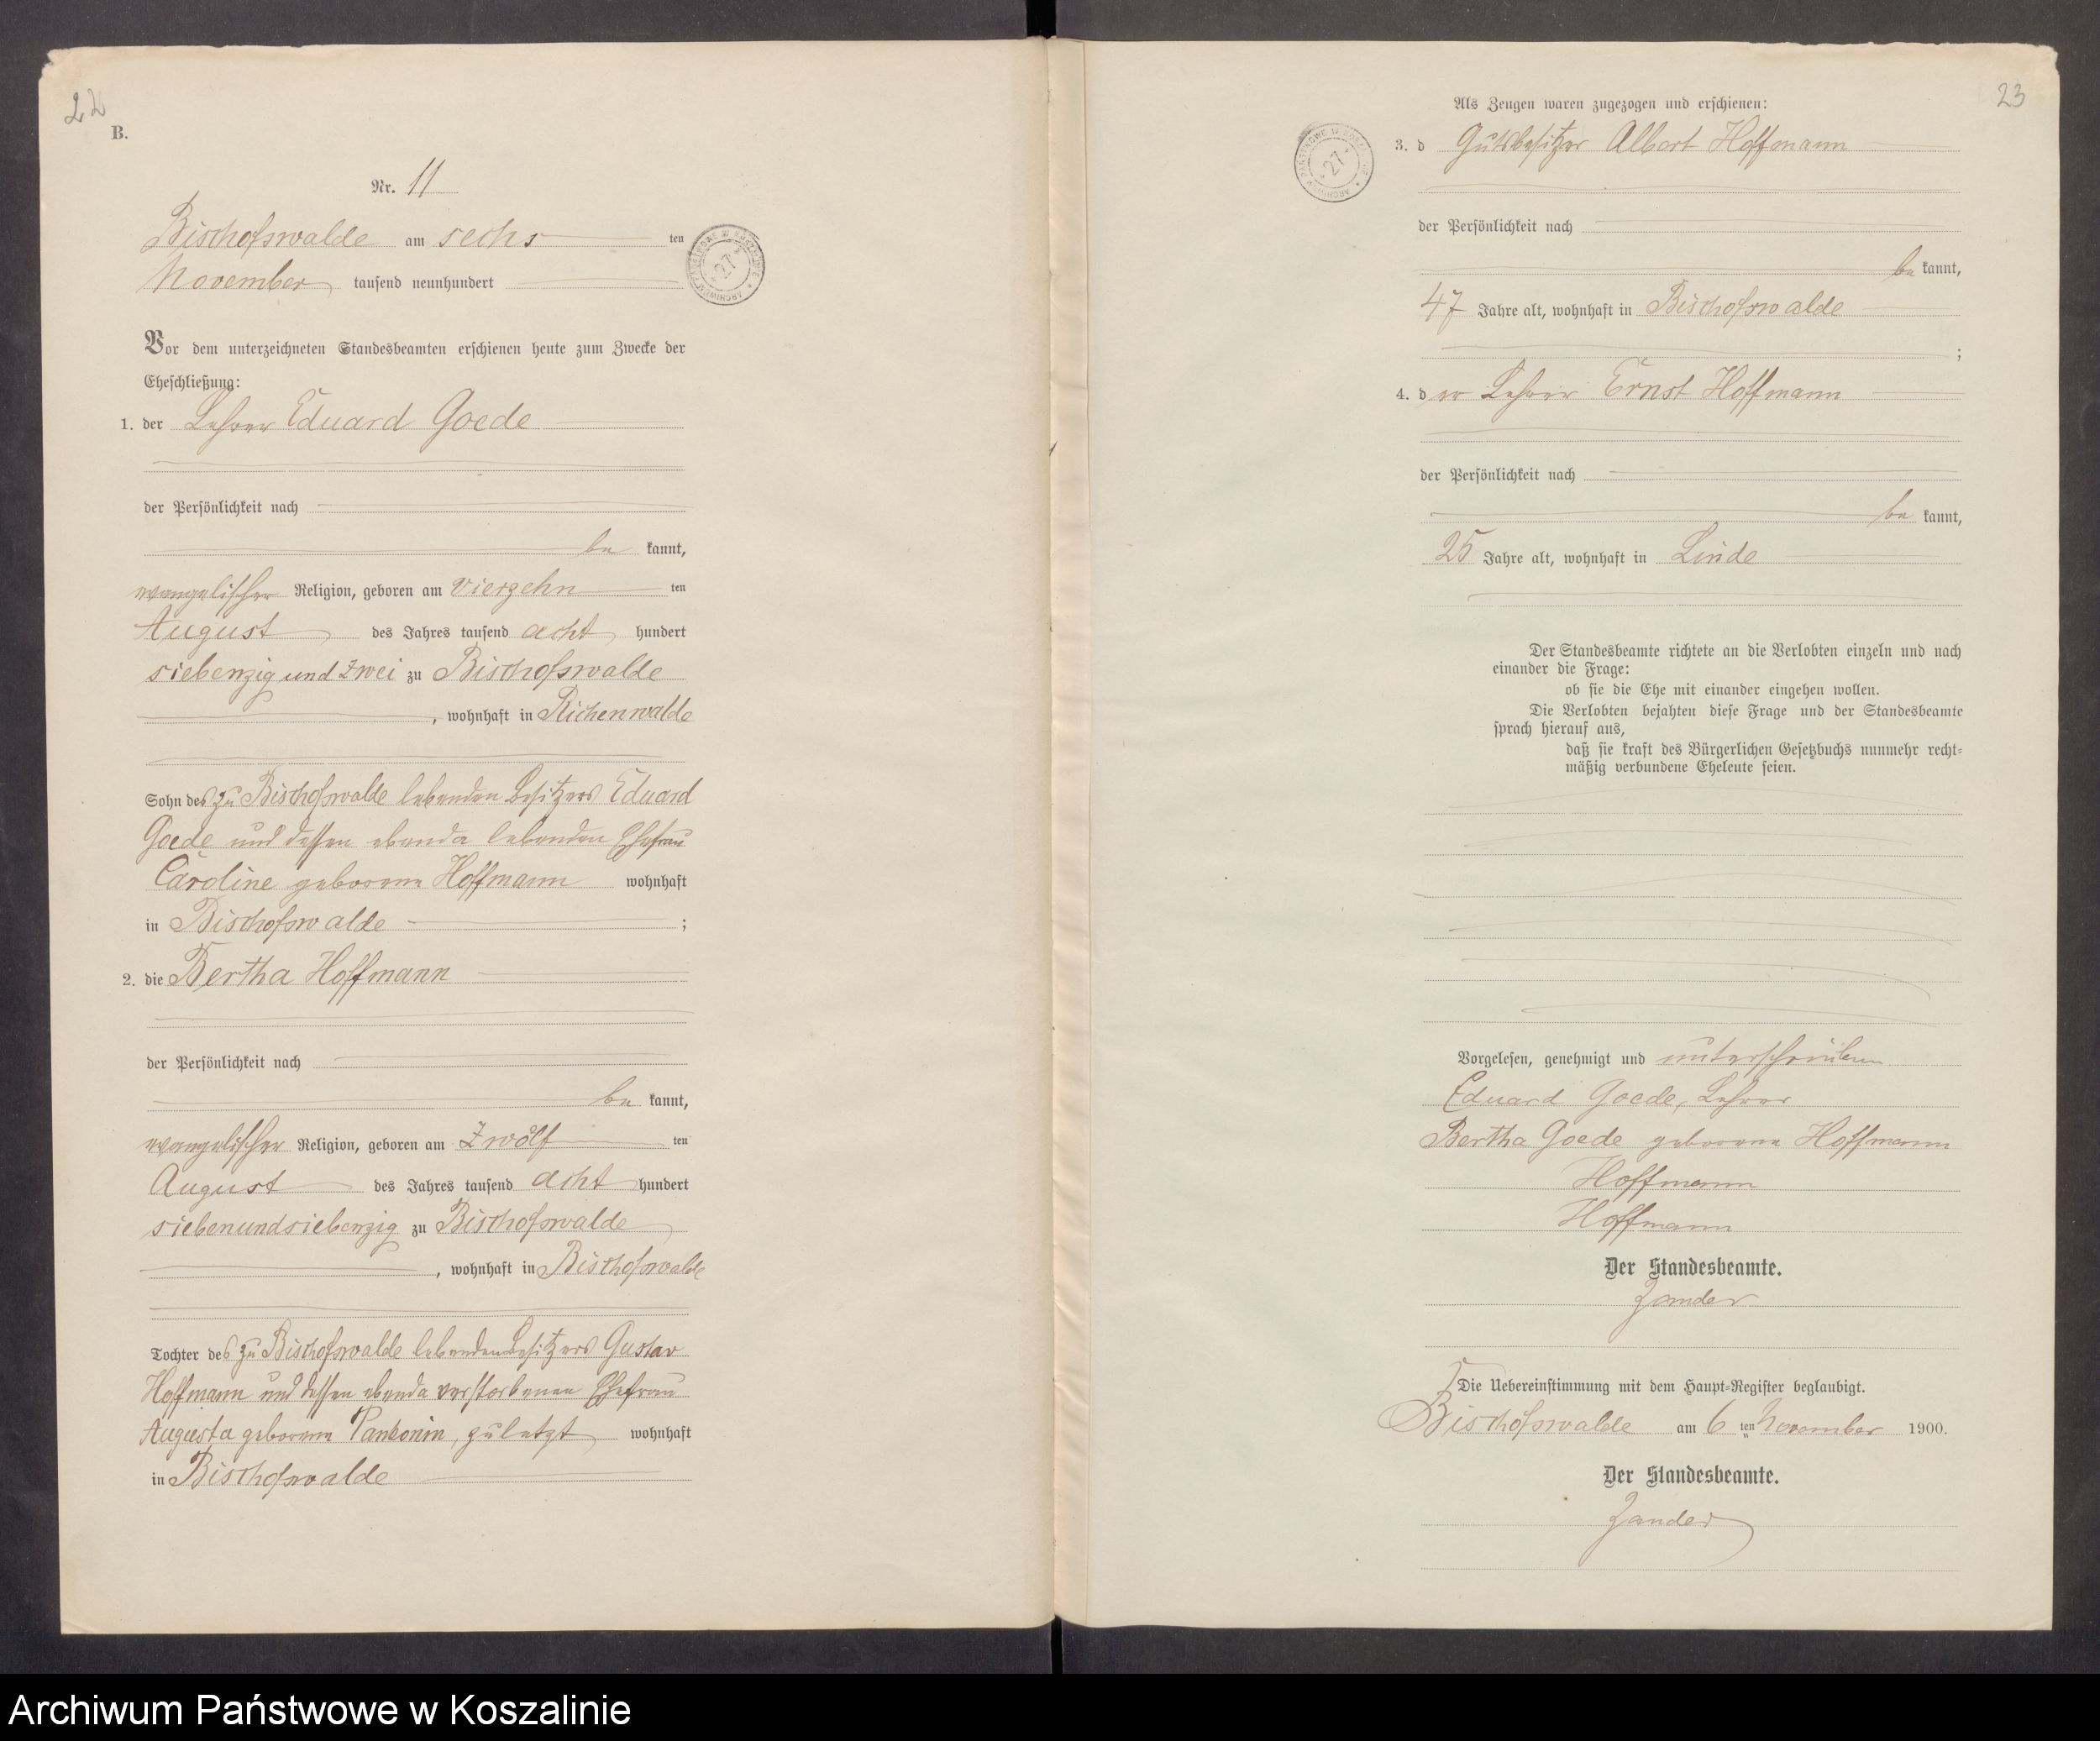 22
B.
Nr. 11
Bischofswalde am sechs ten
November tausend neunhundert
Vor dem unterzeichneten Standesbeamten erschienen heute zum Zwecke der
Eheschließung:
1. der Lehrer Eduard Goede
der Persönlichkeit nach
be kannt,
evangelischer Religion, geboren am vierzehn ten
August des Jahres tausend acht hundert
siebenzig und zwei zu Bischofswalde
, wohnhaft in Richenwalde
Sohn des zu Bischofswalde lebenden Besitzers Eduard
Goede und dessen ebenda lebenden Ehefrau
Caroline geborene Hoffmann wohnhaft
in Bischofswalde ;
2. die Bertha Hoffmann
der Persönlichkeit nach
be kannt,
evangelischer Religion, geboren am zwölf ten
August des Jahres tausend acht hundert
siebenundsiebenzig zu Bischofswalde
, wohnhaft in Bischofswalde
Tochter des zu Bischofswalde lebenden Besitzers Gustav
Hoffmann und dessen ebenda verstorbenen Ehefrau
Augusta geborene Pankonin, zuletzt wohnhaft
in Bischofswalde
23
Als Zeugen waren zugezogen und erschienen:
3. d Gutsbesitzer Albert Hoffmann
der Persönlichkeit nach
be kannt,
47 Jahre alt, wohnhaft in Bischofswalde
;
4. d er Lehrer Ernst Hoffmann
der Persönlichkeit nach
be kannt,
25 Jahre alt, wohnhaft in Linde
Der Standesbeamte richtete an die Verlobten einzeln und nach
einander die Frage:
ob sie die Ehe mit einander eingehen wollen.
Die Verlobten bejahten diese Frage und der Standesbeamte
sprach hierauf aus,
daß sie kraft des Bürgerlichen Gesetzbuchs nunmehr recht-
mäßig verbundene Eheleute seien.
Vorgelesen, genehmigt und unterschrieben
Eduard Goede, Lehrer
Bertha Goede geborene Hoffmann
Hoffmann
Hoffmann
Der Standesbeamte.
Zander
Die Uebereinstimmung mit dem Haupt-Register beglaubigt.
Bischofswalde am 6 ten November 1900.
Der Standesbeamte.
Zander
Archiwum Państwowe w Koszalinie